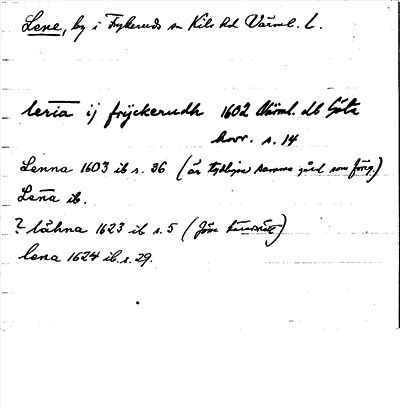 Lene, by i Frykeruds sn Kils hd Värml. L.
leria ij frÿckerudh 1602 Värml. db Göta
hovr. s. 14
Lenna 1603 ib s. 36 (är tydligen samma gård som föreg.)
Lena ib.
? låhna 1623 ib s. 5 (Jöne
lena 1624 ib. s. 29.